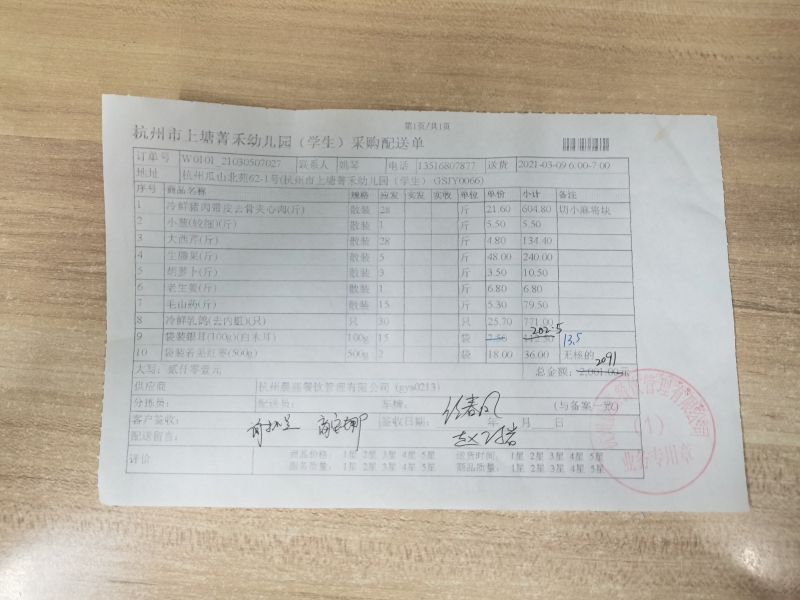 第1页/共1页
杭州市上塘菁禾幼儿园（学生）采购配送单
订单号 W0101_21030507027 联系人 姚琴 电话 13516807877 送货 2021-03-09 6:00-7:00
地址 杭州瓜山北苑62-1号(杭州市上塘菁禾幼儿园（学生） GSJY0066)
序号 商品名称 规格 应发 实发 实收 单位 单价 小计 备注
1 冷鲜猪肉带皮去骨夹心肉(斤) 散装 28 斤 21.60 604.80 切小麻将块
2 小葱(较细)(斤) 散装 1 斤 5.50 5.50
3 大西芹(斤) 散装 28 斤 4.80 134.40
4 生腰果(斤) 散装 5 斤 48.00 240.00
5 胡萝卜(斤) 散装 3 斤 3.50 10.50
6 老生姜(斤) 散装 1 斤 6.80 6.80
7 毛山药(斤) 散装 15 斤 5.30 79.50
8 冷鲜乳鸽(去内脏)(只) 只 30 只 25.70 771.00
202.5
9 袋装银耳(100g)(白木耳) 100g 15 袋 7.50 112.50 13.5
10 袋装若羌红枣(500g) 500g 2 袋 18.00 36.00 无核的
2091
大写：贰仟零壹元 总金额：2,001.00元
供应商 杭州晨燕餐饮管理有限公司 (gys0213)
分拣员： 配送员： 车牌： (与备案一致)
客户签收： 签收日期： 年 月 日
配送留言：
评价 商品价格： 1星 2星 3星 4星 5星 送货时间： 1星 2星 3星 4星 5星
服务质量： 1星 2星 3星 4星 5星 商品质量： 1星 2星 3星 4星 5星
餐饮管理有限公司
(1)
业务专用章